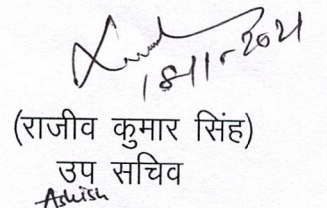 18/11-2021
(राजीव कुमार सिंह)
उप सचिव
Ashish